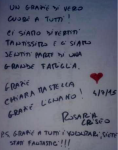 UN GRAZIE DI VERO
CUORE A TUTTI!
CI SIAMO DIVERTITI
TANTISSIMO E CI SIAMO
SENTITI PARTE DI UNA
GRANDE FAMIGLIA.
GRAZIE
CHIARA MASTELLA
GRAZIE LUCIANO!
ROSARIA
GRAZIE A TUTTI I VOLONTARI, SIETE
STATI FANTASTICI!!!